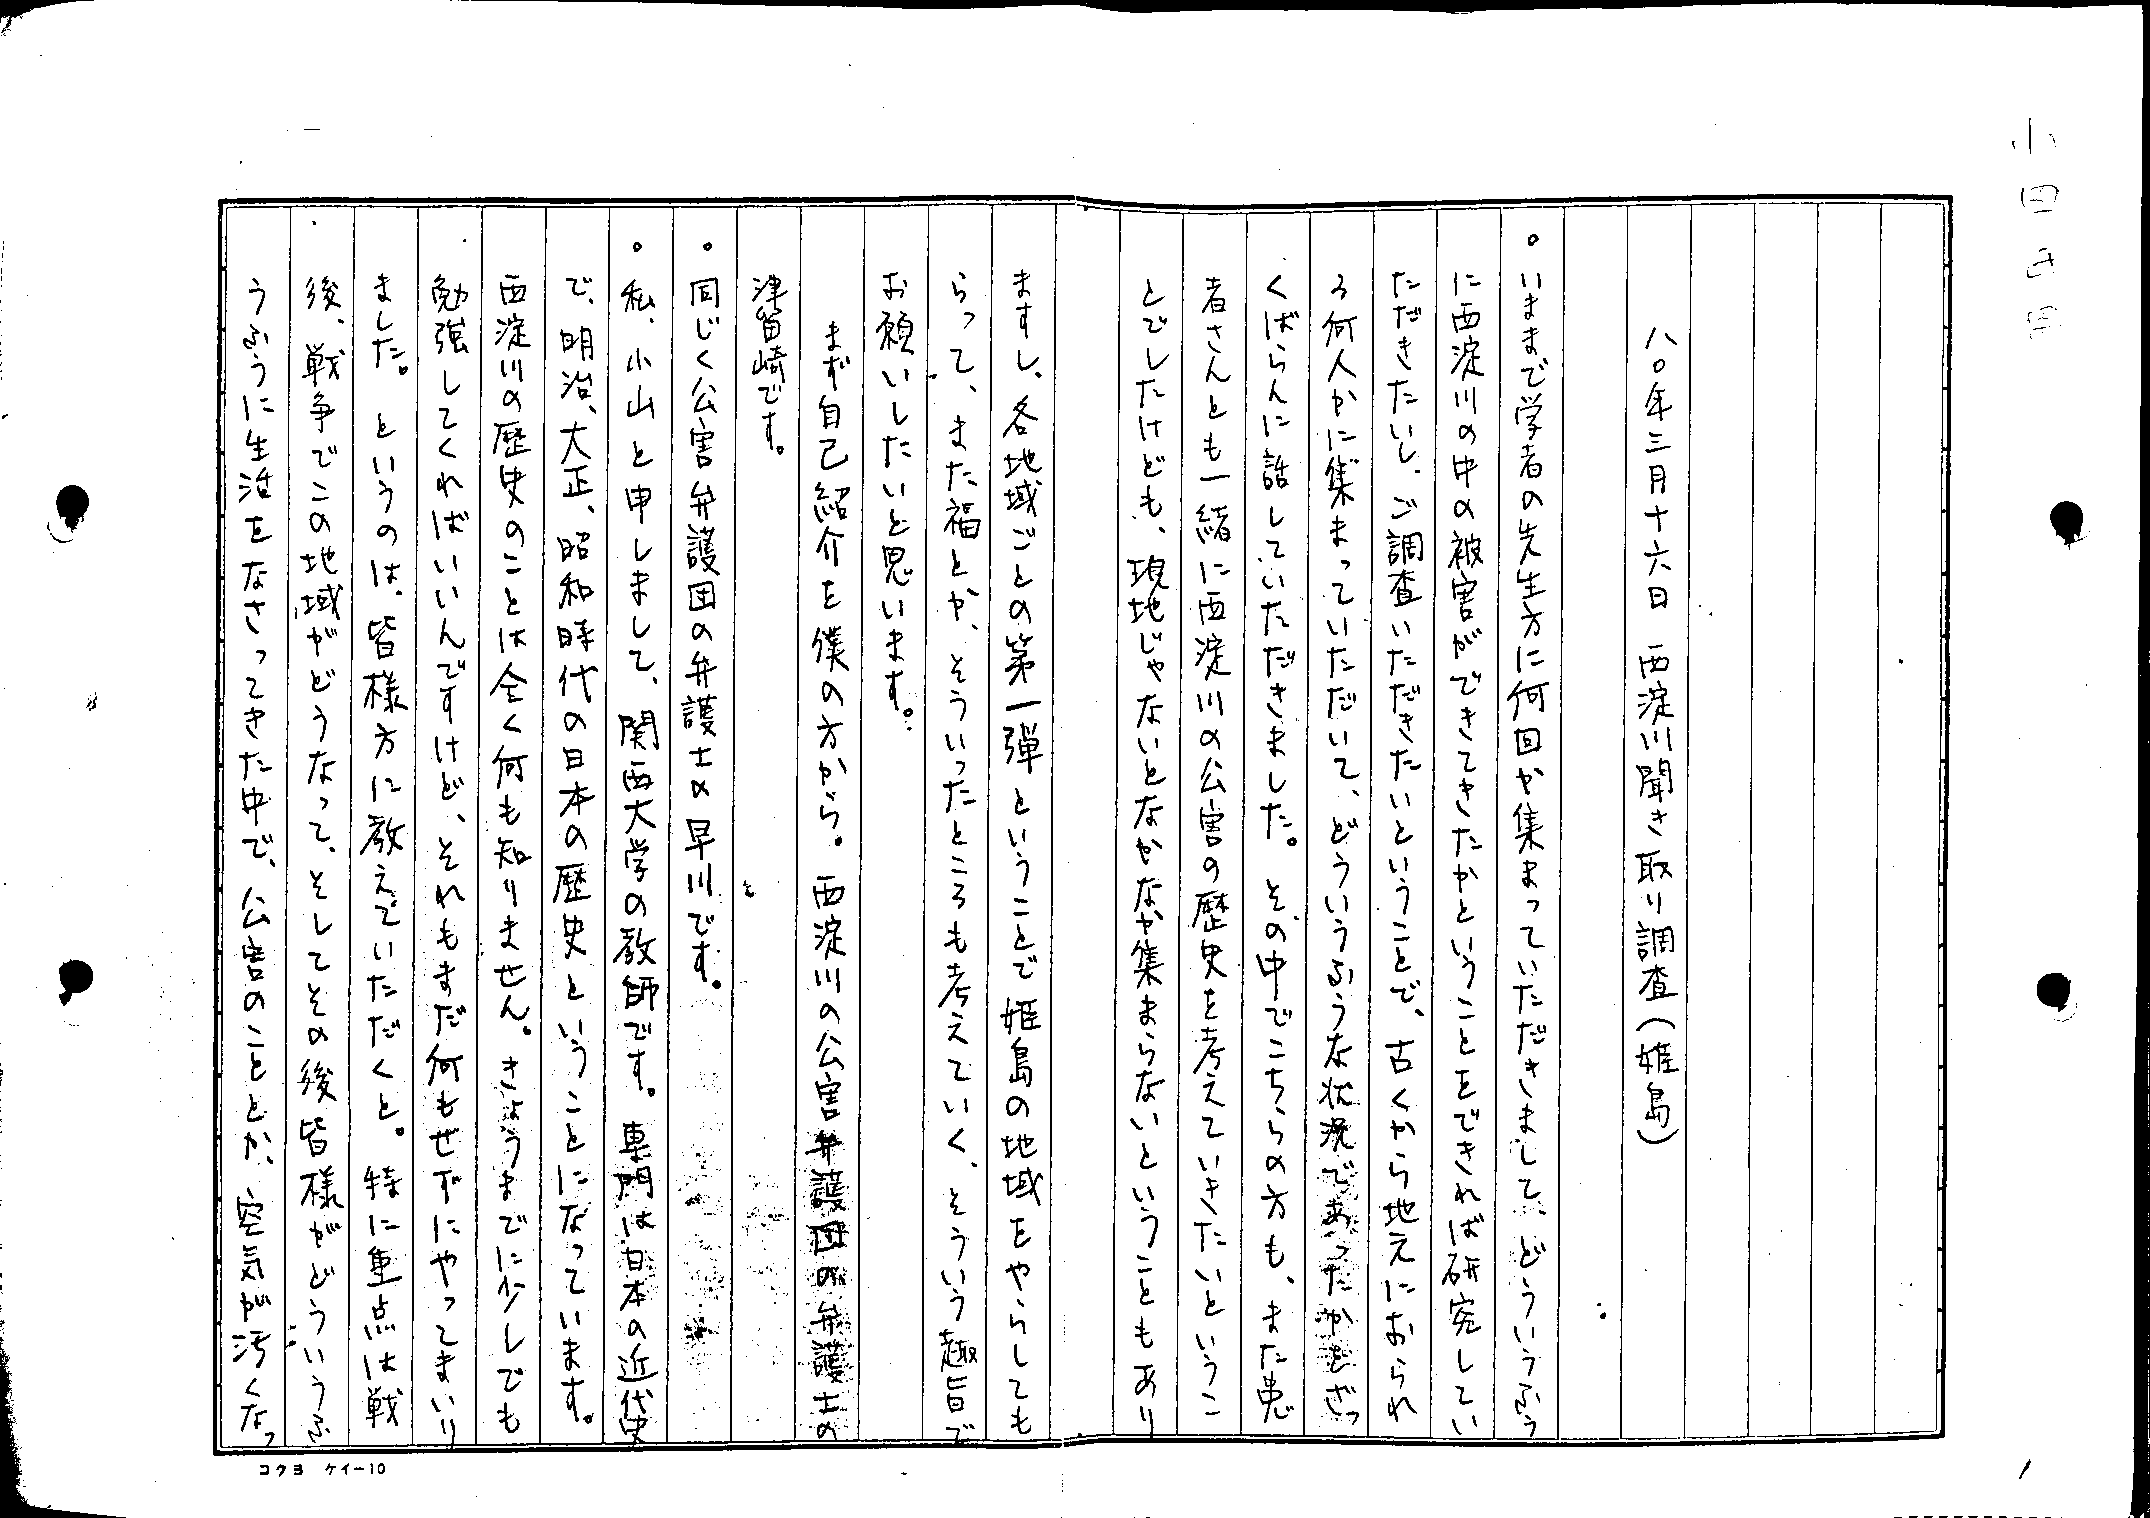 八〇年三月十六日　西淀川聞き取り調査（姫島）
。いままで学者の先生方に何回か集まっていただきまして、どういうふう
に西淀川の中の被害ができてきたかということをできれば研究してい
ただきたいし、ご調査いただきたいということで、古くから地元におられ
る何人かに集まっていただいて、どういうふうな状況であったかをざっ
くばらんに話していただきました。その中でこちらの方も、また患
者さんとも一緒に西淀川の公害の歴史を考えていきたいというこ
とでしたけども、現地じゃないとなかなか集まらないということもあり
ますし、各地域ごとの第一弾ということで姫島の地域をやらしても
らって、また福とか、そういったところも考えていく、そういう趣旨で
お願いしたいと思います。
まず自己紹介を僕の方から。西淀川の公害弁護団の弁護士の
津留崎です。
。同じく公害弁護団の弁護士の早川です。
。私、小山と申しまして、関西大学の教師です。専門は日本の近代史
で、明治、大正、昭和時代の日本の歴史ということになっています。
西淀川の歴史のことは全く何も知りません。きょうまでに少しでも
勉強してくればいいんですけど、それもまだ何もせずにやってまいり
ました。というのは、皆様方に教えていただくと。特に重点は戦
後、戦争でこの地域がどうなって、そしてその後皆様がどういうふ
うふうに生活をなさってきた中で、公害のこととか、空気が汚くなっ
コクヨ　ケイ－10
1